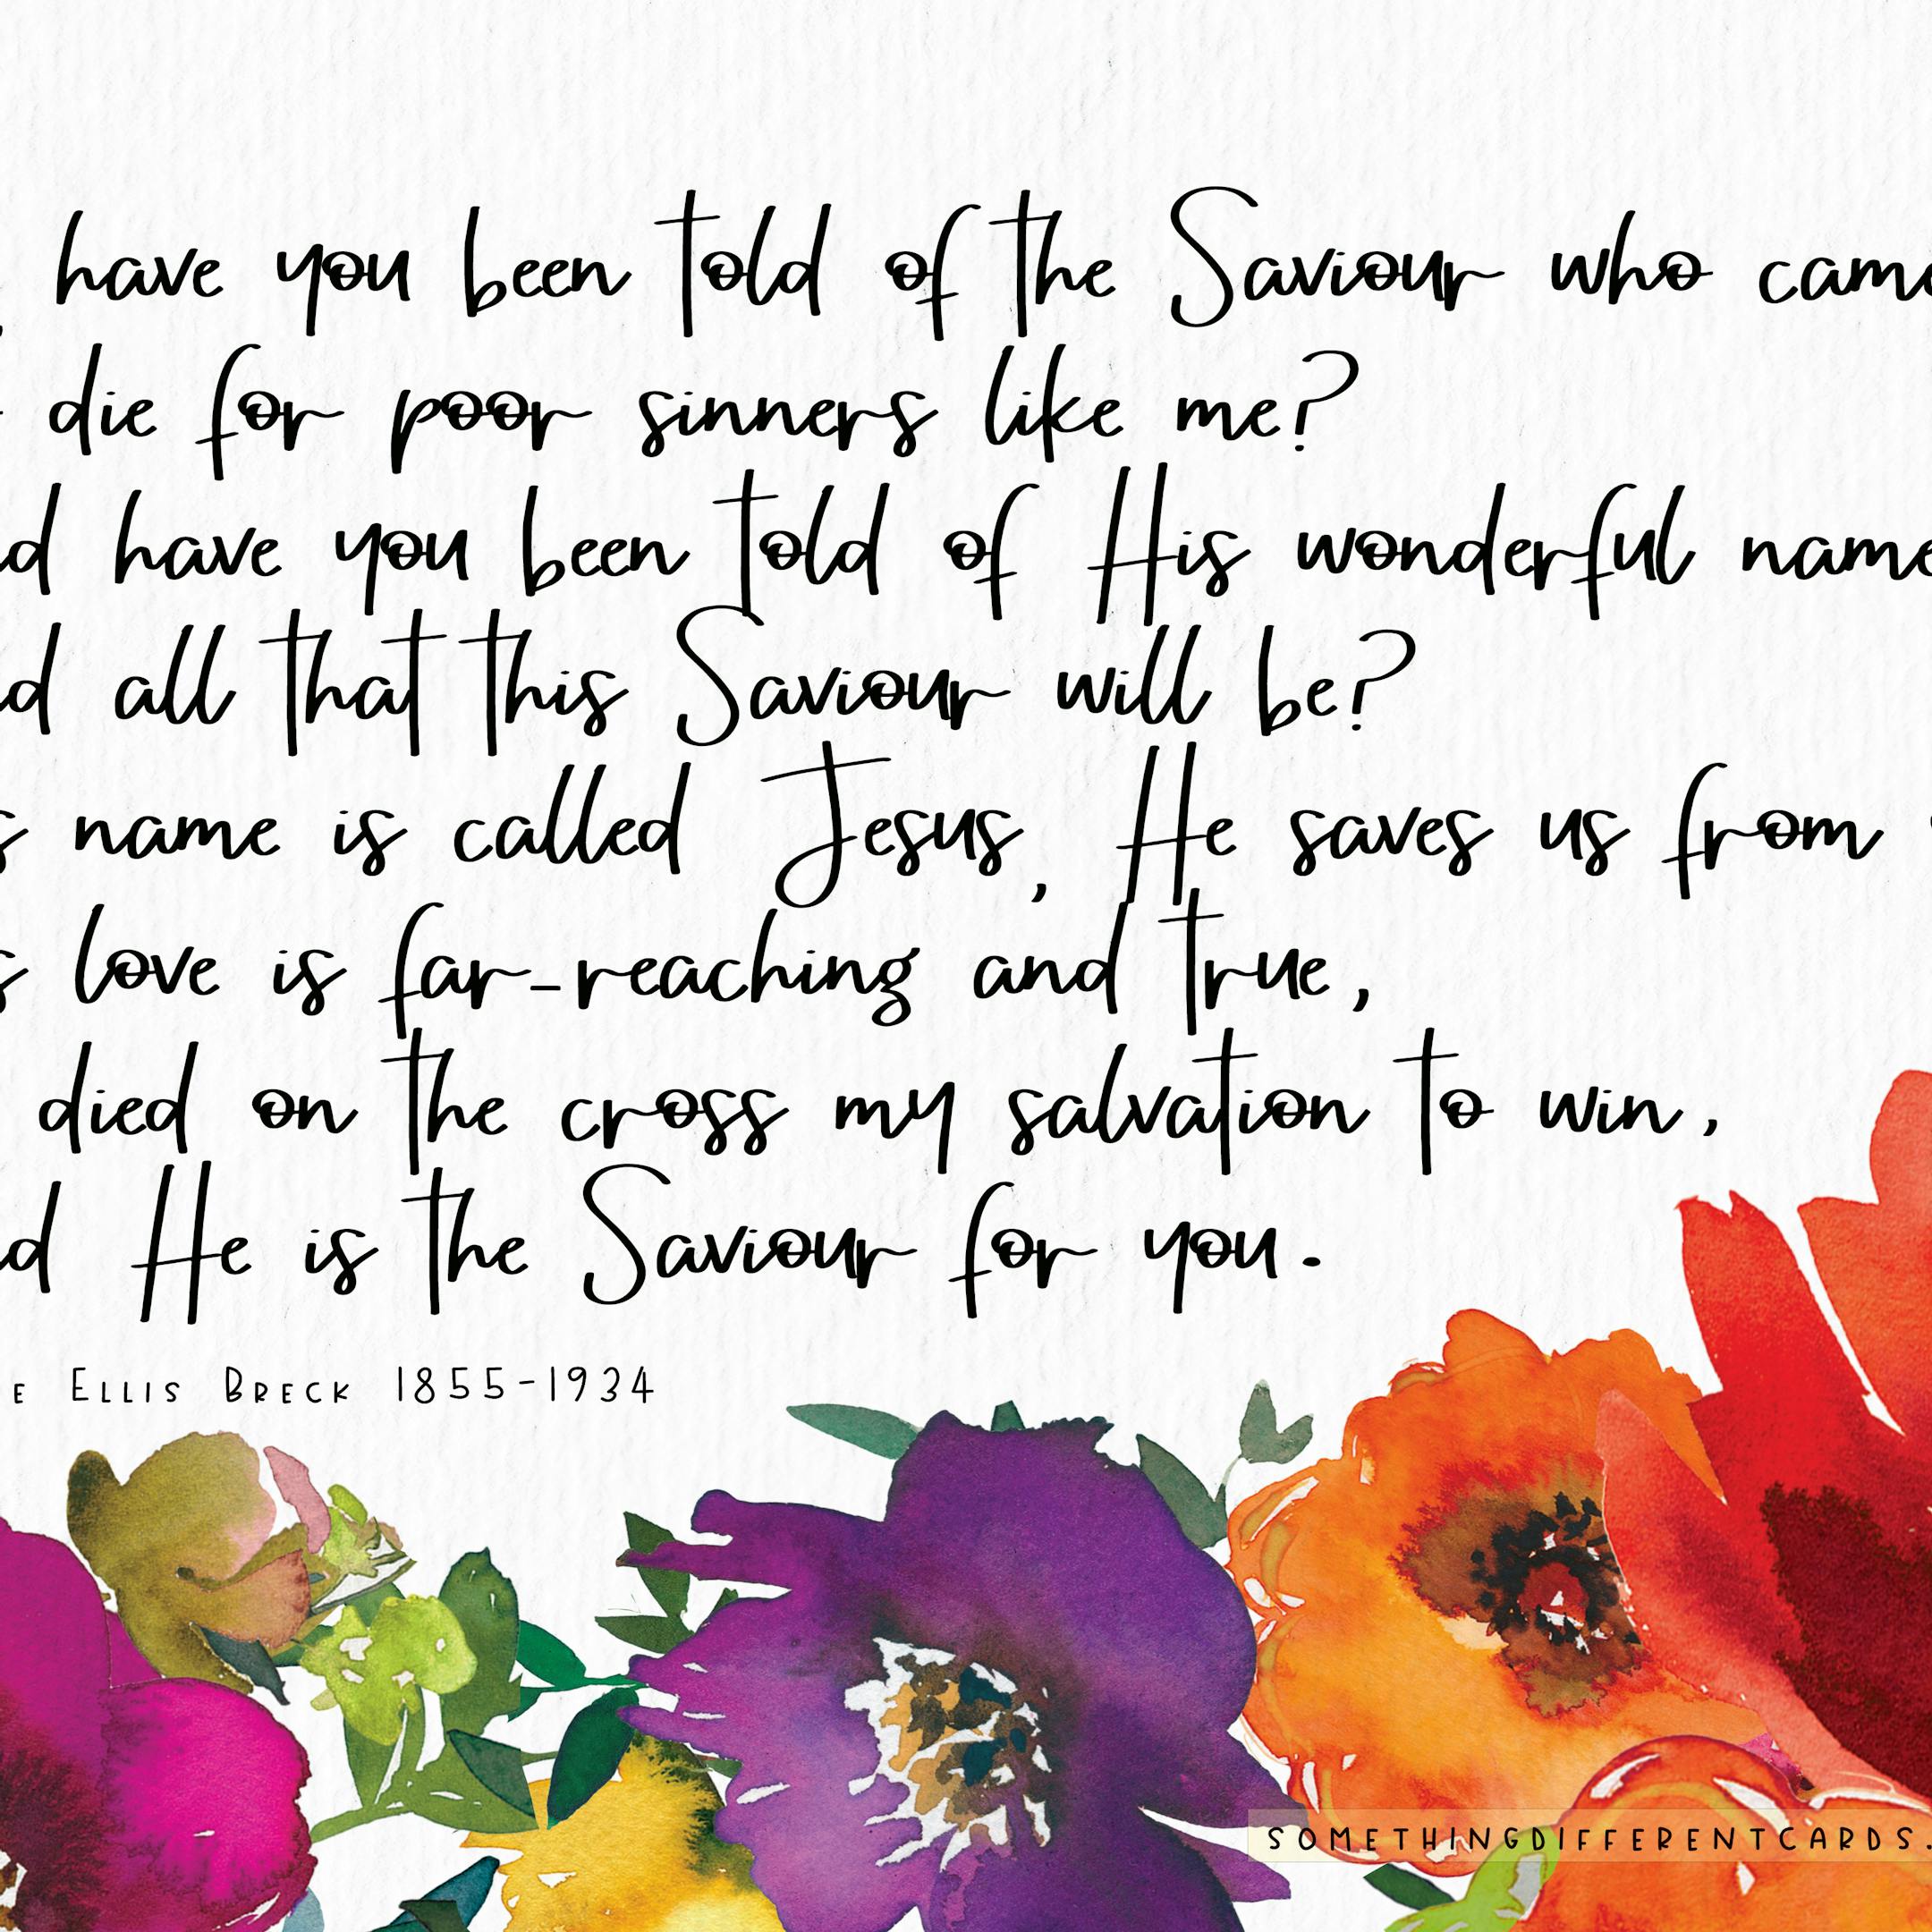 have you been told of the Saviour who came
die for poor sinners like me?
have you been told of His wonderful name
all that this Saviour will be?
name is called Jesus, He saves us from
love is far-reaching and true,
died on the cross my salvation to win,
He is the Saviour for you.
Ellis Breck 1855-1934
SOMETHINGDIFFERENTCARDS.